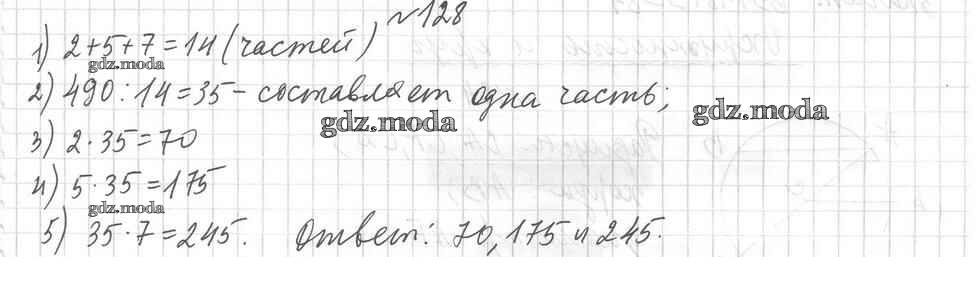 №128
1) 2+5+7=14 (частей)
gdz.moda
2) 490:14=35 – составляет одна часть;
gdz.moda
gdz.moda
3) 2·35=70
4) 5·35=175
gdz.moda
5) 35·7=245. Ответ: 70, 175 и 245.